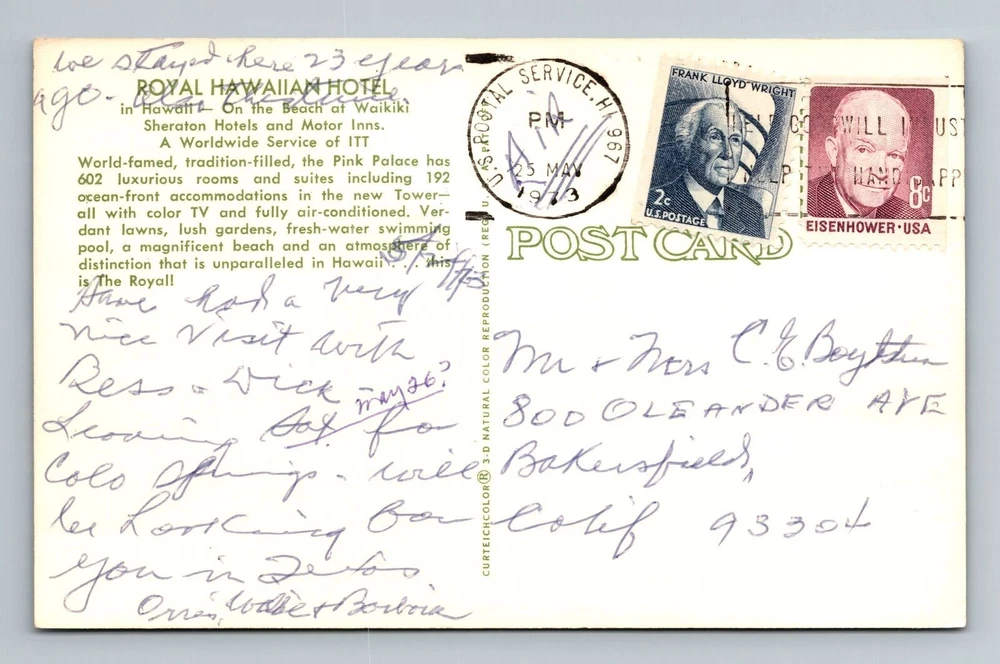 we stayed here 23 years
ago -
ROYAL HAWAIIAN HOTEL
in Hawaii 6 On the Beach at Waikiki
Sheraton Hotels and Motor Inns.
A Worldwide Service of ITT
World-famed, tradition-filled, the Pink Palace has
602 luxurious rooms and suites including 192
ocean-front accommodations in the new Tower—
all with color TV and fully air-conditioned. Ver-
dant lawns, lush gardens, fresh-water swimming
pool, a magnificent beach and an atmosphere of
distinction that is unparalleled in Hawaii . . . this
is The Royal!
Have had a very
nice visit with
Bess & Dick -
may 26?
Leaving Sat for
Colo Springs - will
be looking for
you in Texas
& Barbara
CURTEICHCOLOR® 3-D NATURAL COLOR REPRODUCTION (REG. U.S.
U.S. POSTAL SERVICE, HI 967
PM
25 MAY
1973
Air
FRANK LLOYD WRIGHT
2c
U.S. POSTAGE
8c
EISENHOWER·USA
POST CARD
Mr & Mrs C.E.
800 OLEANDER AVE
Bakersfield,
Calif 93304